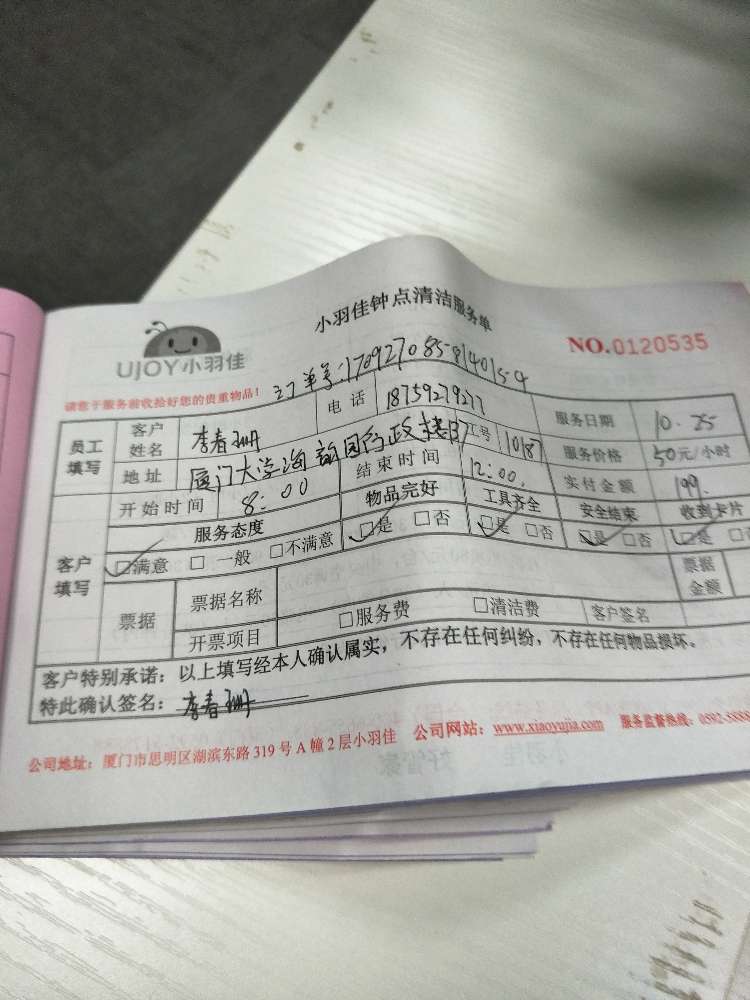 小羽佳钟点清洁服务单
UJOY小羽佳
NO.0120535
请您于服务前收拾好您的贵重物品！ 订单号:170927085814015-4
员工填写 客户姓名 李春珊 电话 18759279277 服务日期 10.25
地址 厦门大学海韵园行政楼B 工号 11087 服务价格 50元/小时
开始时间 8:00 结束时间 12:00 实付金额 199.
客户填写 服务态度 物品完好 工具齐全 安全结束 收到卡片
☑满意 □一般 □不满意 ☑是 □否 ☑是 □否 ☑是 □否 ☑是 □
票据 票据名称 票据金额
开票项目 □服务费 □清洁费 客户签名
客户特别承诺：以上填写经本人确认属实，不存在任何纠纷，不存在任何物品损坏。
特此确认签名：李春珊
公司地址：厦门市思明区湖滨东路319号A幢2层小羽佳 公司网站：www.xiaoyujia.com 服务监督热线：0592-5888